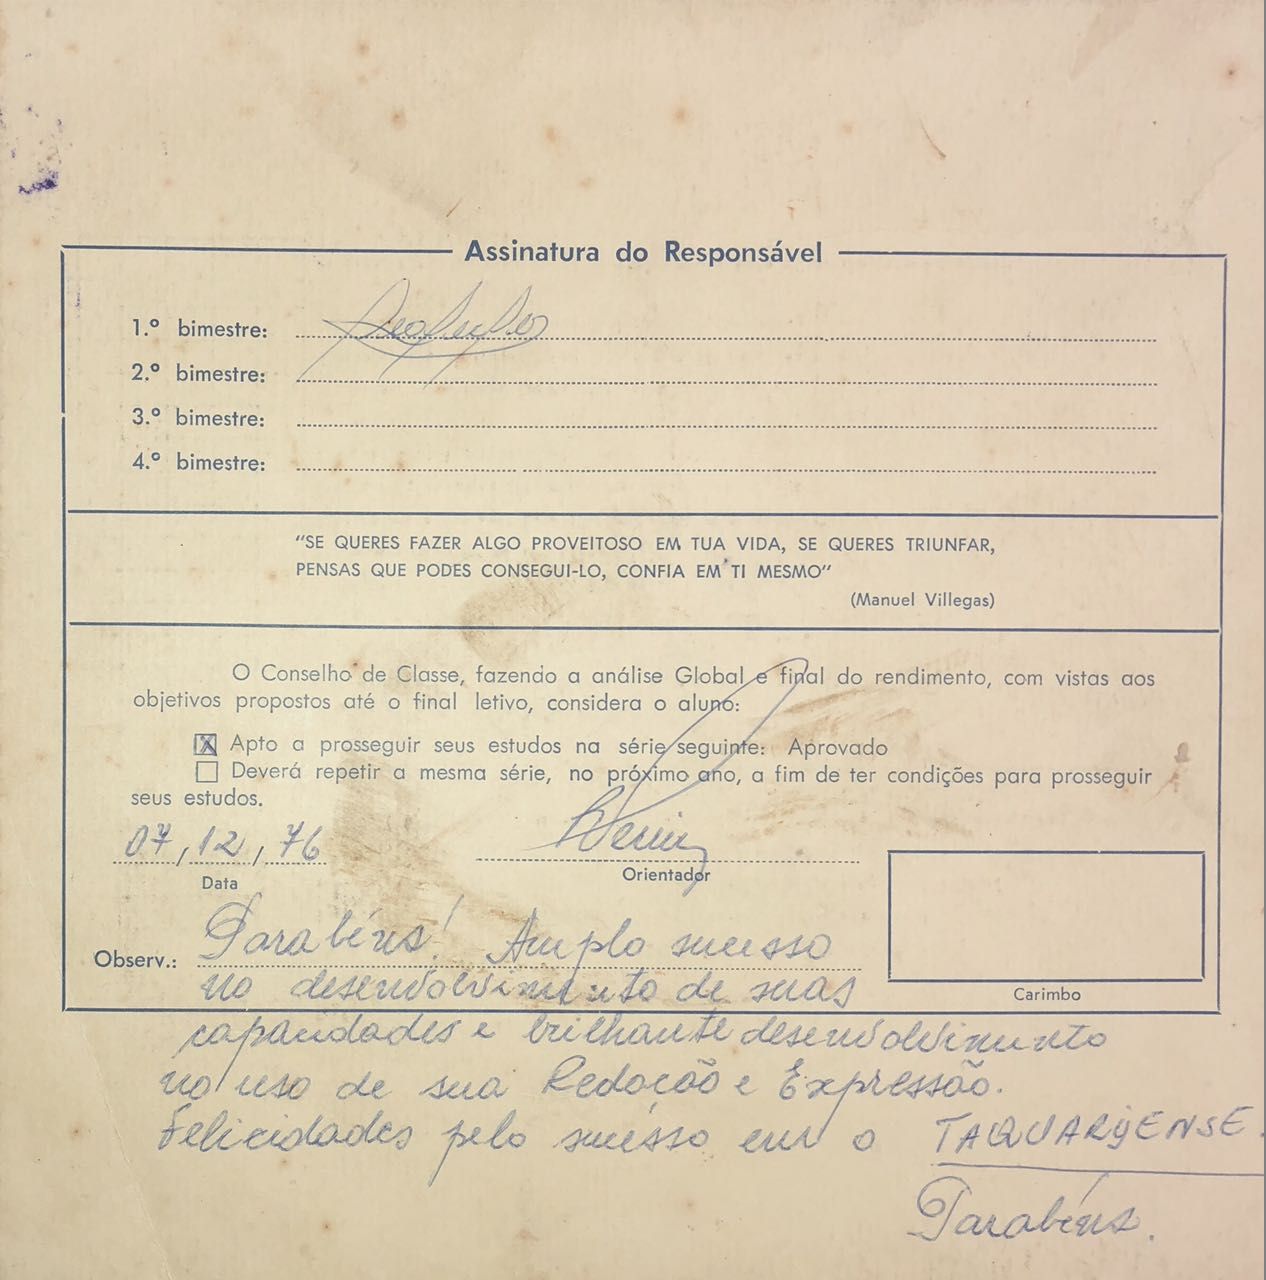 Assinatura do Responsável
1.º bimestre:
2.º bimestre:
3.º bimestre:
4.º bimestre:
"SE QUERES FAZER ALGO PROVEITOSO EM TUA VIDA, SE QUERES TRIUNFAR,
PENSAS QUE PODES CONSEGUI-LO, CONFIA EM TI MESMO"
(Manuel Villegas)
O Conselho de Classe, fazendo a análise Global e final do rendimento, com vistas aos
objetivos propostos até o final letivo, considera o aluno:
X Apto a prosseguir seus estudos na série seguinte: Aprovado
Deverá repetir a mesma série, no próximo ano, a fim de ter condições para prosseguir
seus estudos.
07,12,76
Data
Orientador
Observ.: Parabéns! Amplo sucesso
no desenvolvimento de suas
Carimbo
capacidades e brilhante desenvolvimento
no uso de sua Redação e Expressão.
Felicidades pelo sucesso em o TAQUARYENSE.
Parabéns.